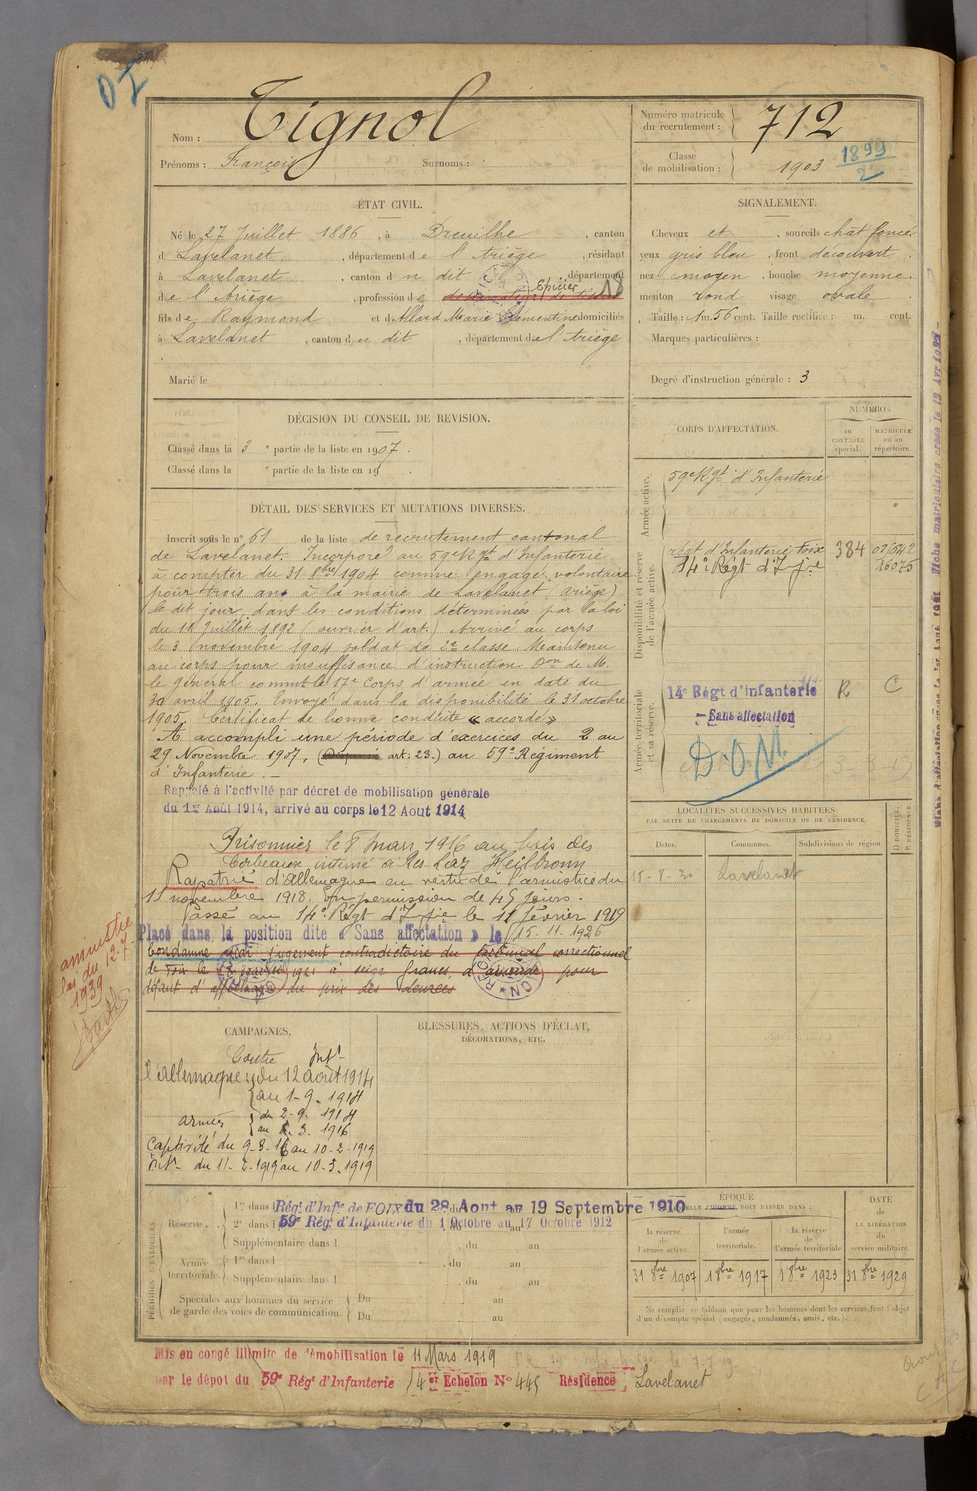 Nom : Tignol
Prénoms : François Surnoms :
Numéro matricule du recrutement : 712
Classe de mobilisation : 1903 1899
2
ÉTAT CIVIL.
Né le 27 Juillet 1886, à Dreuilhe, canton
d Lavelanet, département de l'Ariège, résidant
à Lavelanet, canton du dit, département
de l'Ariège, profession de Epicier 18
fils de Raymond et d'Allard Marie Clémentine domiciliés
à Lavelanet, canton du dit, département de l'Ariège
Marié le
SIGNALEMENT.
Cheveux et sourcils chat foncé
yeux gris bleu, front découvert,
nez moyen, bouche moyenne
menton rond visage ovale
Taille : 1m. 56 cent. Taille rectifiée : m. cent.
Marques particulières :
Degré d'instruction générale : 3
DÉCISION DU CONSEIL DE REVISION.
Classé dans la 3e partie de la liste en 1907.
Classé dans la e partie de la liste en 19
DÉTAIL DES SERVICES ET MUTATIONS DIVERSES.
Inscrit sous le n° 61 de la liste de recrutement cantonal
de Lavelanet. Incorporé au 59e Rgt d'Infanterie
à compter du 31 8bre 1904 comme engagé volontaire
pour trois ans à la mairie de Lavelanet (Ariège)
le dit jour, dans les conditions déterminées par la loi
du 11 Juillet 1892 (ouvrier d'art.) Arrivé au corps
le 3 novembre 1904 soldat de 2e classe. Maintenu
au corps pour insuffisance d'instruction. Don de M.
le général commt le 17e Corps d'armée en date du
30 avril 1905. Envoyé dans la disponibilité le 31 octobre
1905. Certificat de bonne conduite « accordé »
A accompli une période d'exercices du 2 au
29 Novembre 1907, ( art: 23.) au 59e Régiment
d'Infanterie. —
Rappelé à l'activité par décret de mobilisation générale
du 1er Août 1914, arrivé au corps le 12 Aout 1914
Prisonnier le 8 mars 1916 au bois des
Corbeaux interné à Res Laz Heilbronn
Rapatrié d'Allemagne en vertu de l'armistice du
11 novembre 1918. En permission de 45 jours.
Passé au 14e Régt d'Ifie le 11 février 1919
Placé dans la position dite « Sans affectation » le 15.11.1926
Condamné par jugement contradictoire du tribunal correctionnel
de Foix le janvier 1921 à seize francs d'amende pour
défaut d'affichage du prix des denrées
amnistié
loi du 12-7-
1939
CORPS D'AFFECTATION.
NUMÉROS
AU CONTRÔLE spécial.
MATRICULE OU AU répertoire.
Armée active.
59e Rgt d'Infanterie
Disponibilité et réserve de l'armée active.
régt d'Infanterie Foix 384
14e Régt d'Ifie 16075
Armée territoriale et sa réserve.
14e Régt d'infanterie R C
— Sans affectation
D.O.M.
LOCALITÉS SUCCESSIVES HABITÉES
PAR SUITE DE CHANGEMENTS DE DOMICILE OU DE RÉSIDENCE.
Dates. Communes. Subdivisions de région. D DOMICILE. R RÉSIDENCE
15-8-30 Lavelanet
CAMPAGNES.
Contre Intr
l'Allemagne du 12 août 1914
au 1-9.1914
armées du 2-9.1914
au 8.3.1916
Captivité du 9-3-16 au 10-2-1919
Intr du 11-2-1919 au 10-3-1919
BLESSURES, ACTIONS D'ÉCLAT,
DÉCORATIONS, ETC.
PÉRIODES D'EXERCICES.
Réserve. 1re dans l Régt d'Infie de FOIX du 28 Aout au 19 Septembre 1910
2e dans l 59e Régt d'Infanterie du 1 Octobre au 17 Octobre 1912
Supplémentaire dans l , du au
Armée territoriale. 1re dans l , du au
Supplémentaire dans l , du au
Spéciales aux hommes du service Du au
de garde des voies de communication. Du au
ÉPOQUE
À LAQUELLE L'HOMME DOIT PASSER DANS :
la réserve de l'armée active. l'armée territoriale. la réserve de l'armée territoriale
DATE DE LA LIBÉRATION du service militaire.
31 8bre 1907 1 8bre 1917 1 8bre 1923 31 8bre 1929
Ne remplir ce tableau que pour les hommes dont les services font l'objet
d'un décompte spécial (engagés, condamnés, omis, etc.).
Mis en congé illimité de démobilisation le 11 Mars 1919
par le dépôt du 59e Régt d'Infanterie 4er Echelon N° 445 Résidence Lavelanet